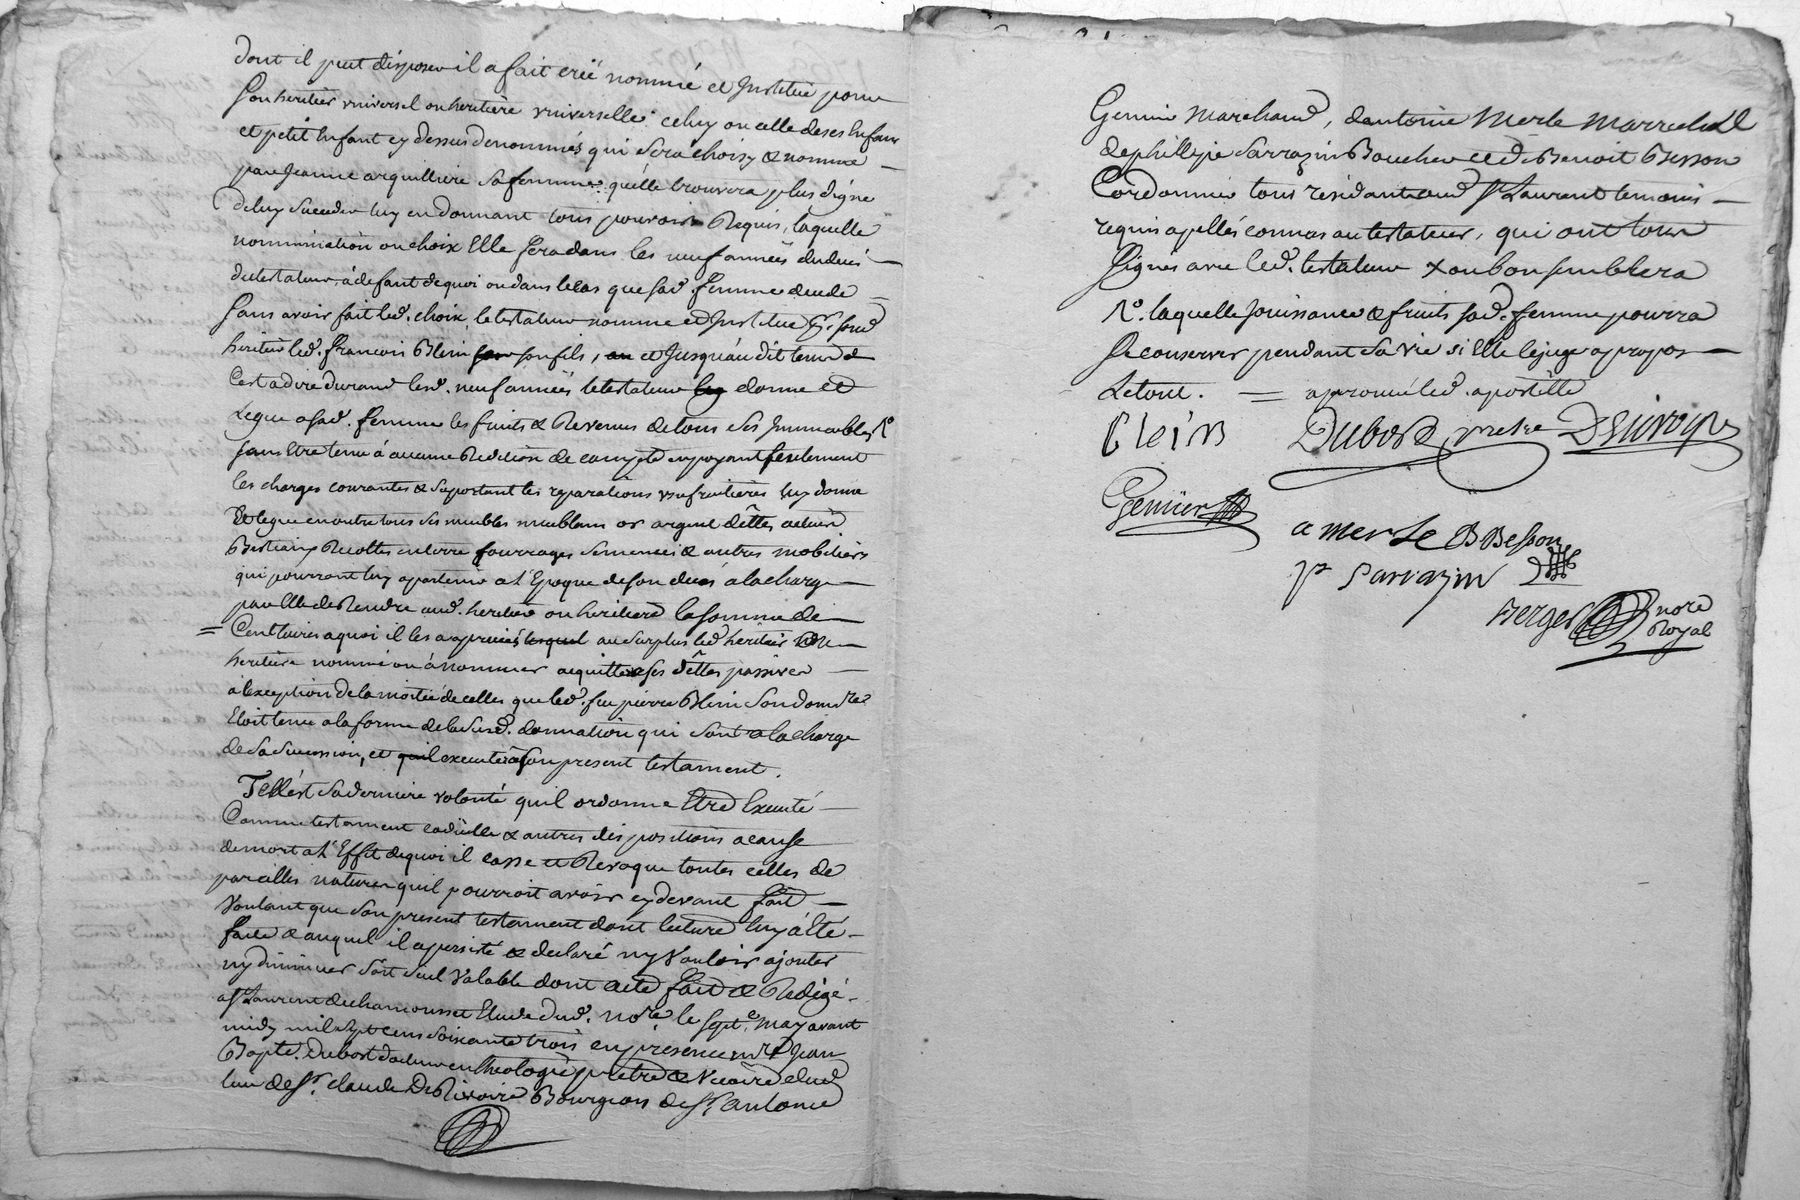 dont il peut disposer il a fait créé nommé et Institué pour
son heritier vniversel ou heritiere vniverselle celuy ou celle de ses Enfans
et petit Enfant cy dessus denommés qui sera choisy & nommé
par Jeanne arquilliere sa femme qu'elle trouvera plus digne
de luy succeder luy en donnant tous pouvoirs Requis, laquelle
nommination ou choix Elle fera dans les neuf années du deces
du testateur, a defaut de quoi ou dans le cas que sad. femme decede
sans avoir fait led. choix, le testateur nomme et Institue pr. sond
heritier led. francois Blein son fils, et Jusqu'au dit tems &
C'est a dire durant lesd. neuf années le testateur donne et
Legue a sad. femme les fruits & Revenus de tous ses Immeubles Ro
sans Etre tenue á aucune Redition de compte en payant seulement
les charges courantes & suportant les reparations vsufruitieres luy donne
Et legue en outre tous ses meubles meublans or argent dêttes actives
Bestiaux Recoltes en terre fourrages semences & autres mobiliers
qui pourront luy apartenir a l'Epoque de son deces a la charge
par Elle de Rendre aud. heritier ou heritiere la somme de
= Cent livres a quoi il les a apreciés au surplus led. heritier ou
heritiere nommé ou á nommer acquittera ses dêttes passives
a l'exception de la moitié de celles que led. feu pierre Blein son donre.
Etoit tenu a la forme de la susd. donnation qui sont a la charge
de sa succession, et executera son present testament.
Tell'est sa derniere volonté qu'il ordonne Etre Executé
Comme testament codicille & autres dispositions a cause
de mort a l'Effet de quoi il casse et Revoque toutes celles de
pareilles natures qu'il pourroit avoir cy devant fait
Voulant que son present testament dont lecture luy a été
faite & auquel il a persisté & declaré ny Vouloir ajouter
ny diminuer soit seul Valable dont acte fait & Redigé
a St. Laurent de chamousset Etude dud. nore. le sept. may avant
midy mil sept cens soixante trois en presence de mre Jean
Bapte. Dubost docteur en theologie prêtre & Vicaire dud
lieu de Sr. claude DeRivoire Bourgeois de Sr. antoine
Genier Marchand, d'antoine Merle Marrechal
de phillipe Sarrazin Boucher et de Benoit Besson
Cordonnier tous residants aud St. Laurent temoins
requis apellés connus au testateur, qui ont tous
signés avec led. testateur x ou bon semblera
Ro. laquelle Jouissance & fruits sad. femme pourra
se conserver pendant sa vie si Elle le juge a propos
Le tout. = aprouvé led. apostille
Blein Dubost prêtre DeRivoyre
Genier
a merle B Besson
p Sarrazin
Berger nore
Royal